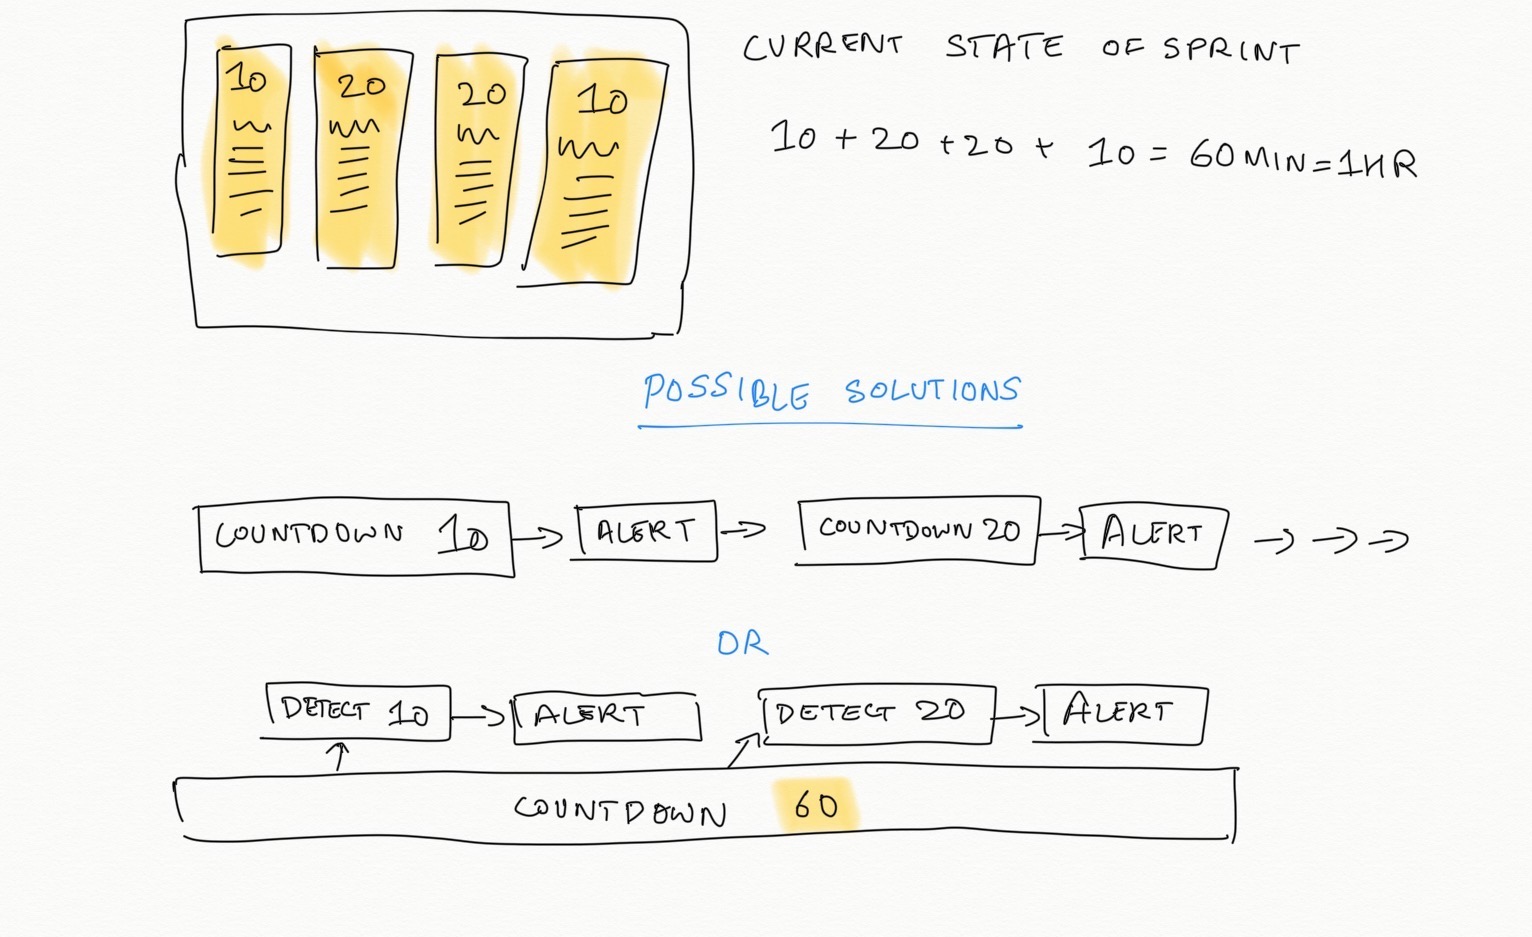 10 20 20 10
CURRENT STATE OF SPRINT
10 + 20 + 20 + 10 = 60 MIN = 1 HR
POSSIBLE SOLUTIONS
COUNTDOWN 10 → ALERT → COUNTDOWN 20 → ALERT → → →
OR
DETECT 10 → ALERT DETECT 20 → ALERT
COUNTDOWN 60